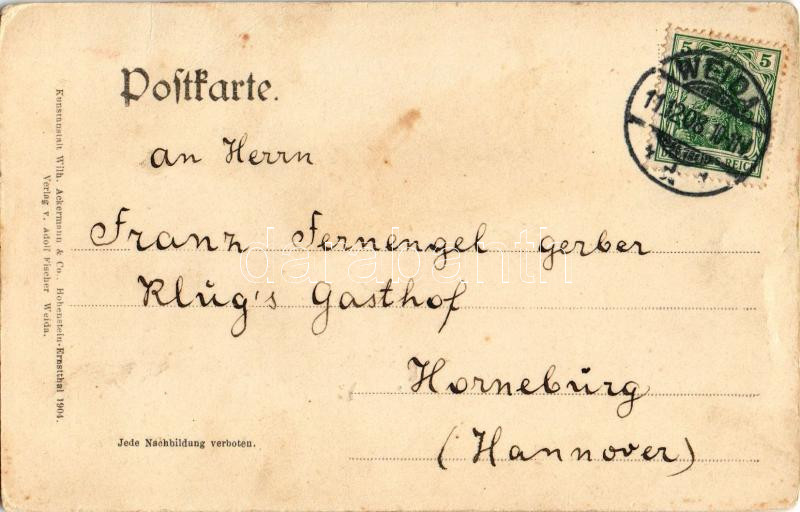 Postkarte.
5 5
WEIDA
DEUTSCHES REICH
an Herrn
Franz Fernengel gerber
Klŭg's Gasthof
Hornebŭrg
(Hannover)
Kunstanstalt Wilh. Ackermann & Co., Hohenstein-Ernstthal 1904.
Verlag v. Adolf Fischer Weida.
Jede Nachbildung verboten.
darabanth